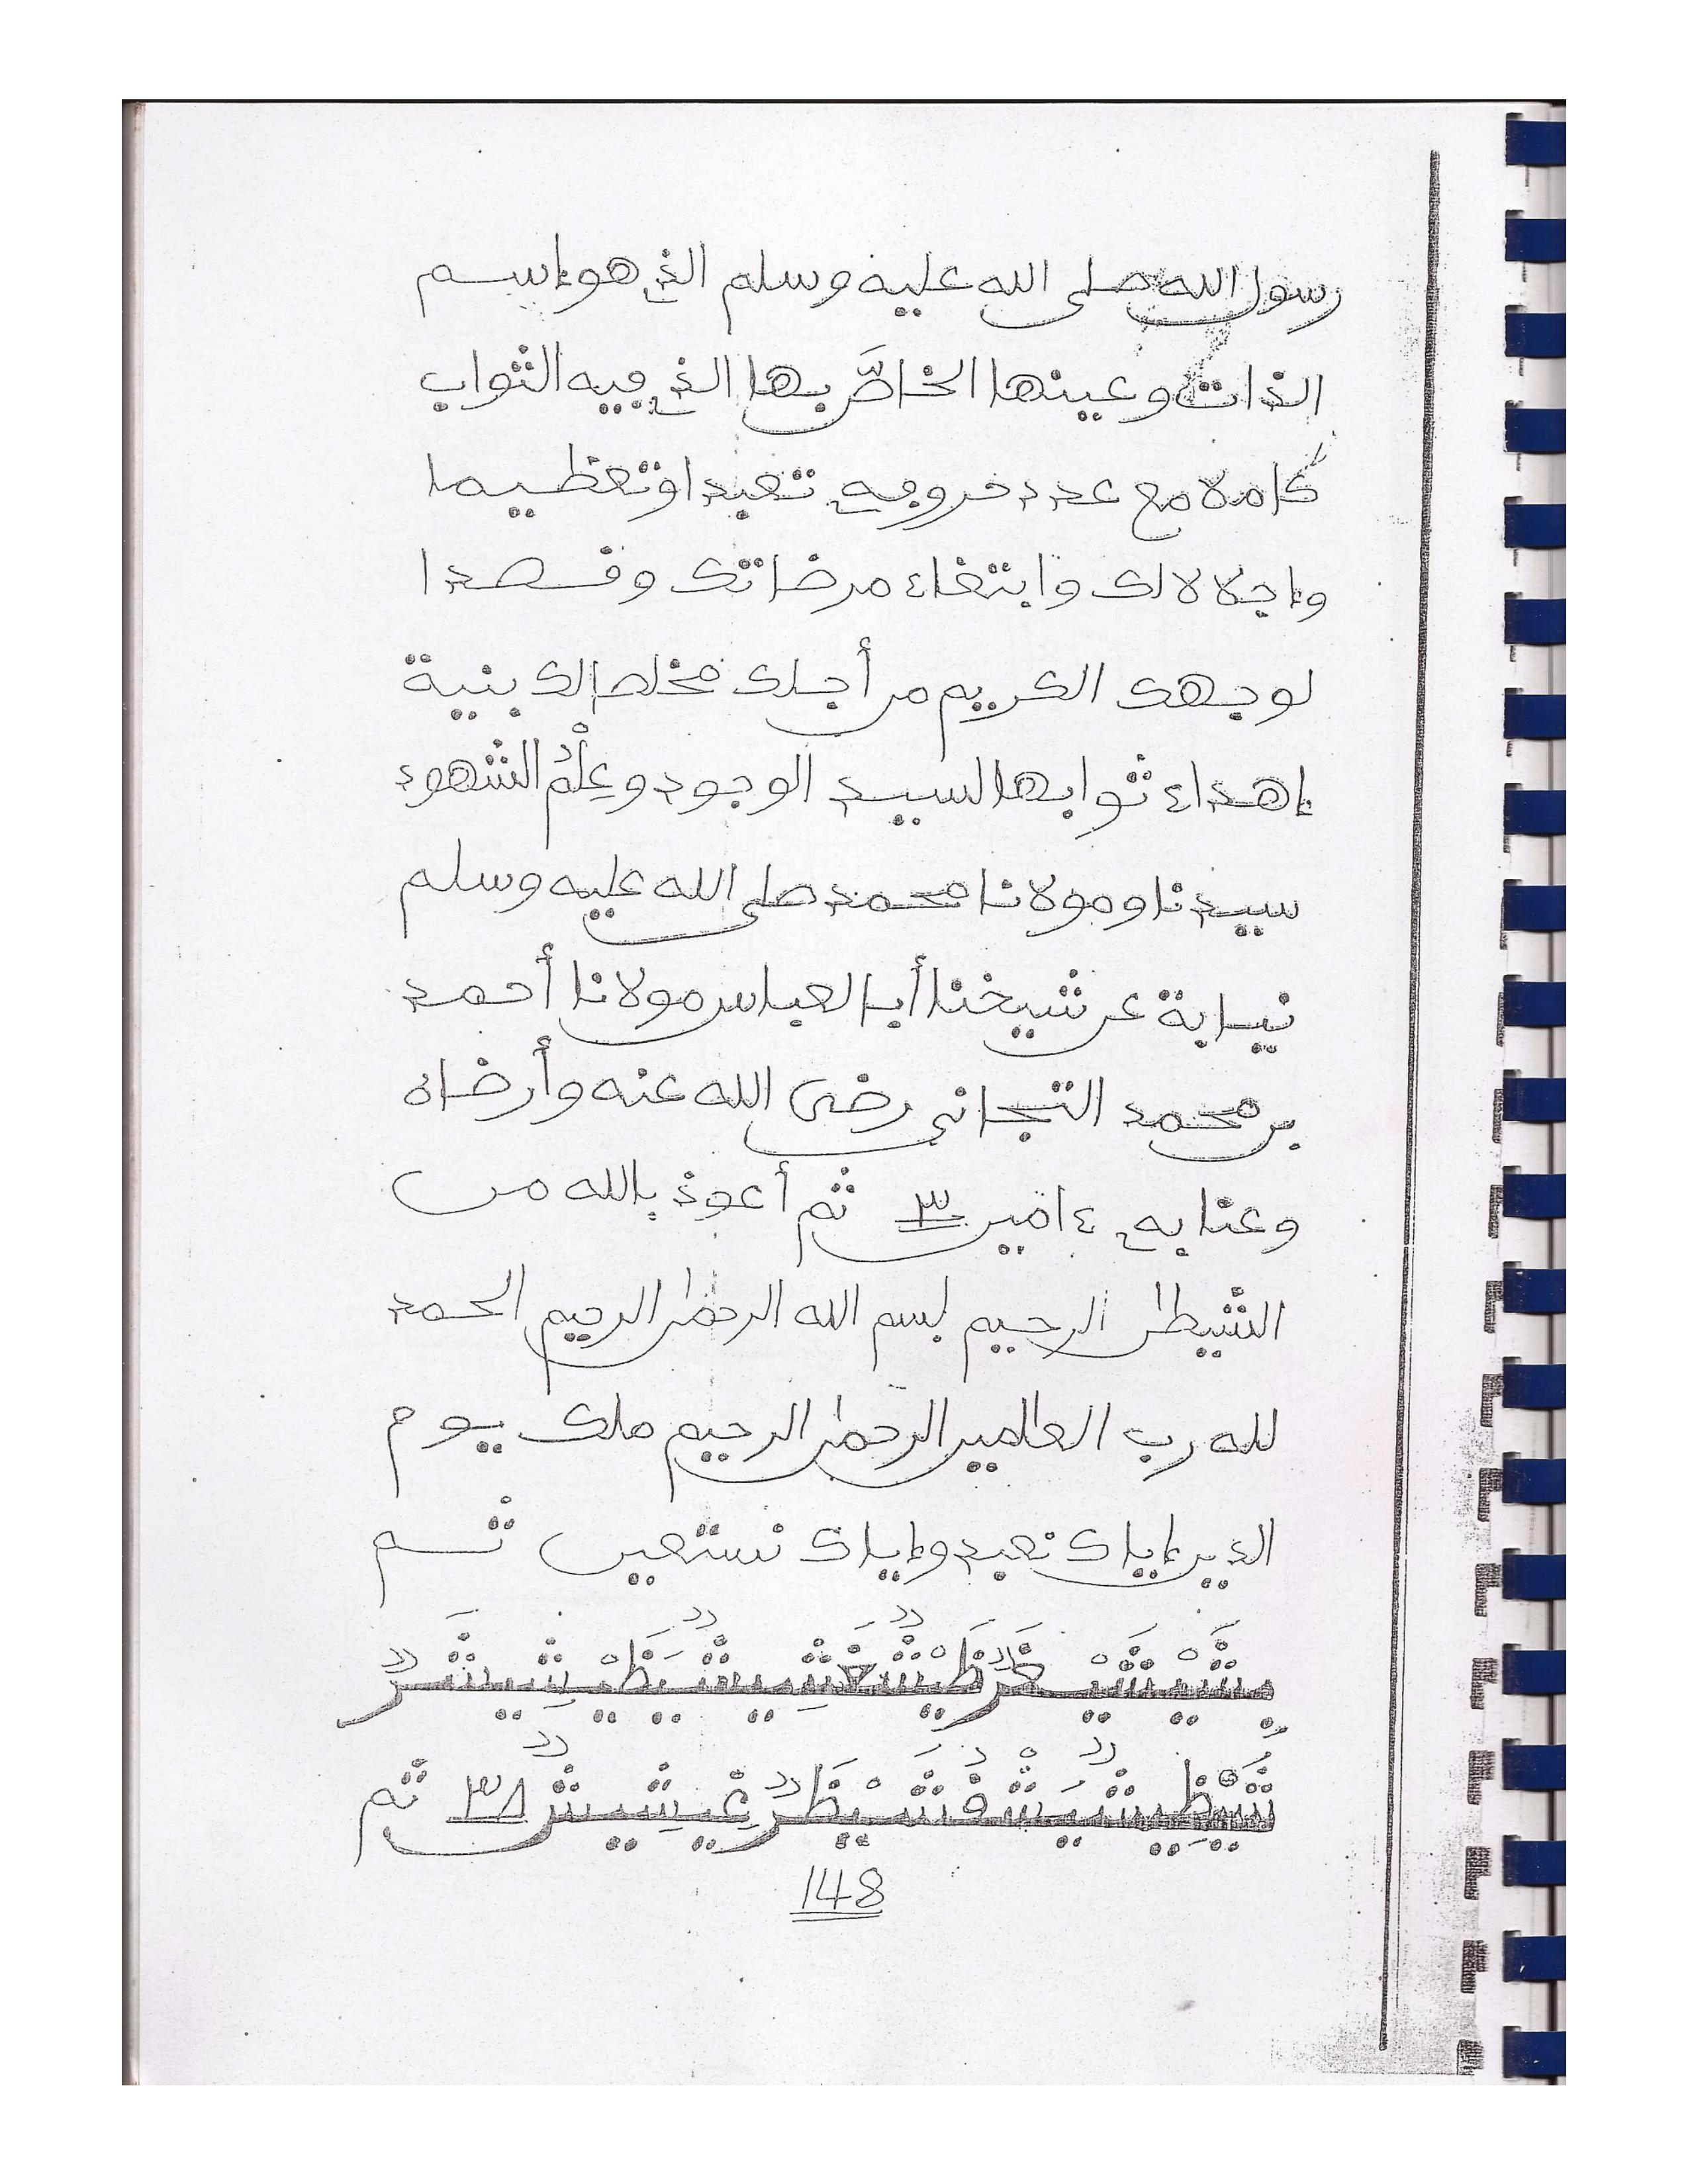 رسول الله صلى الله عليه وسلم الذي هو إسم
الذات وعينها الخاصّ بها الذي فيه الثواب
كاملا مع عدد خروجه تعبدا وتعظيما
وإجلالا لك وابتغاء مرضاتك وقصدا
لوجهك الكريم من أجلك مخلصا لك بنية
إهداء ثوابها لسيد الوجود وعِلْمُ الشهود
سيدنا ومولانا محمد صلى الله عليه وسلم
نيابة عن شيخنا أبا العباس مولانا أحمد
بن محمد التجاني رضى الله عنه وأرضاه
وعنا به ءامين ٣ ثم أعوذ بالله من
الشيطن الرجيم بسم الله الرحمن الرحيم الحمد
لله رب العالمين الرحمن الرحيم ملك يوم
الدين إياك نعبد وإياك نستعين ثم
٣ ثم
148